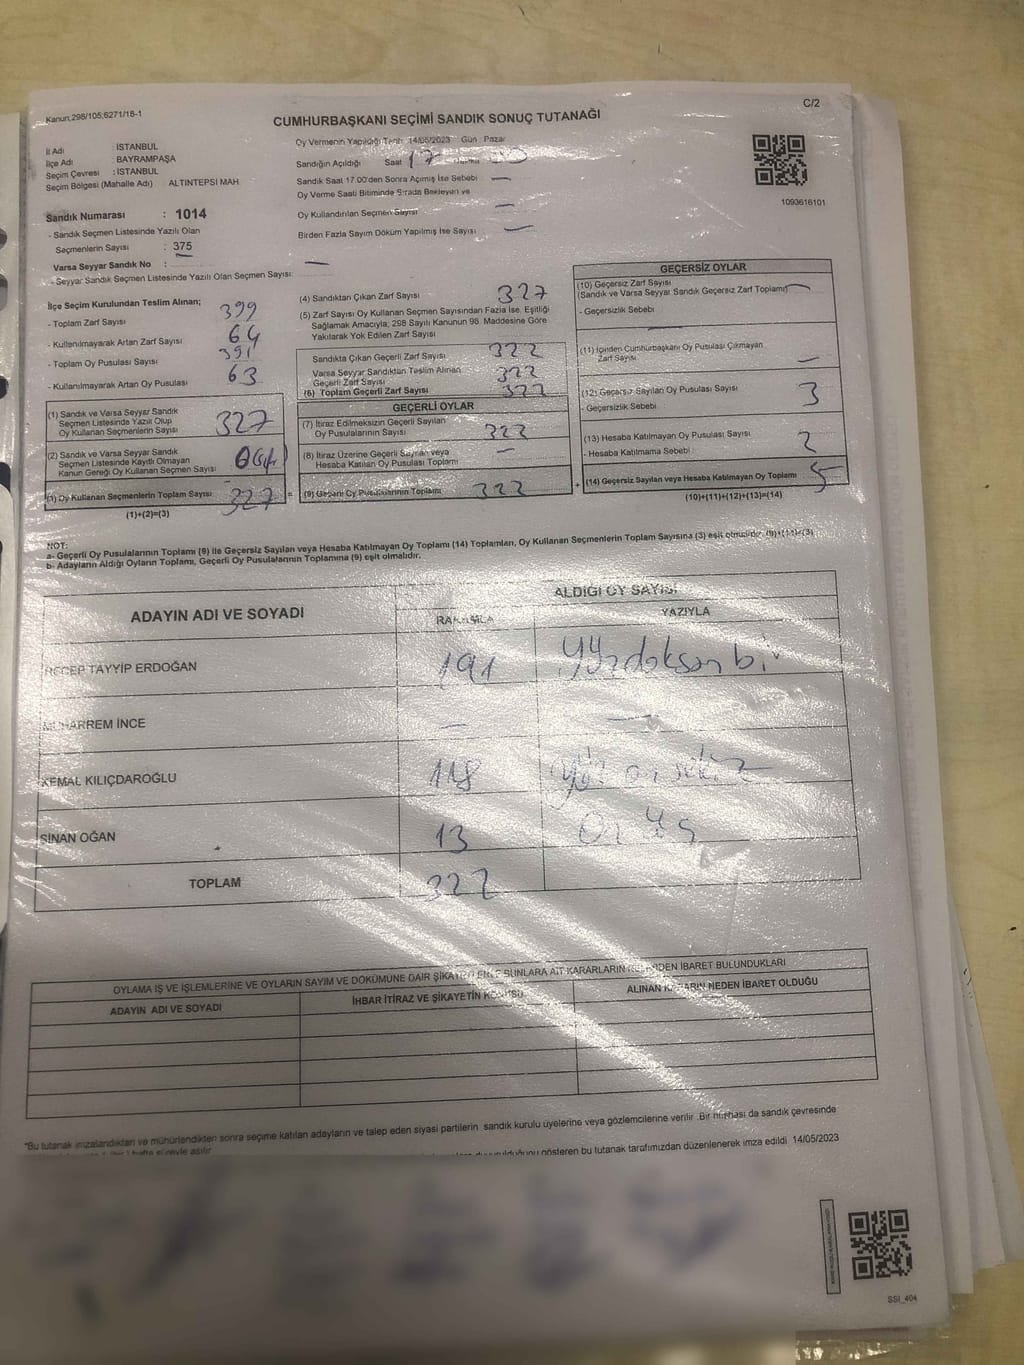 Kanun;298/105;6271/18-1
C/2
CUMHURBAŞKANI SEÇİMİ SANDIK SONUÇ TUTANAĞI
İl Adı : İSTANBUL
İlçe Adı : BAYRAMPAŞA
Seçim Çevresi : İSTANBUL
Seçim Bölgesi (Mahalle Adı) ALTINTEPSİ MAH
Oy Vermenin Yapıldığı Tarih 14/05/2023 Gün Pazar
Sandığın Açıldığı Saat 17
Sandık Saat 17.00'den Sonra Açılmış İse Sebebi —
Oy Verme Saati Bitiminde Sırada Bekleyen ve
Oy Kullandırılan Seçmen Sayısı —
Birden Fazla Sayım Döküm Yapılmış İse Sayısı —
1093616101
Sandık Numarası : 1014
- Sandık Seçmen Listesinde Yazılı Olan
Seçmenlerin Sayısı : 375
Varsa Seyyar Sandık No : —
- Seyyar Sandık Seçmen Listesinde Yazılı Olan Seçmen Sayısı:
İlçe Seçim Kurulundan Teslim Alınan;
- Toplam Zarf Sayısı 399
- Kullanılmayarak Artan Zarf Sayısı 64
- Toplam Oy Pusulası Sayısı 391
- Kullanılmayarak Artan Oy Pusulası 63
(1) Sandık ve Varsa Seyyar Sandık
Seçmen Listesinde Yazılı Olup
Oy Kullanan Seçmenlerin Sayısı 327
(2) Sandık ve Varsa Seyyar Sandık
Seçmen Listesinde Kayıtlı Olmayan
Kanun Gereği Oy Kullanan Seçmen Sayısı 0
(3) Oy Kullanan Seçmenlerin Toplam Sayısı 327
(1)+(2)=(3)
(4) Sandıktan Çıkan Zarf Sayısı 327
(5) Zarf Sayısı Oy Kullanan Seçmen Sayısından Fazla İse, Eşitliği
Sağlamak Amacıyla; 298 Sayılı Kanunun 98. Maddesine Göre
Yakılarak Yok Edilen Zarf Sayısı
Sandıkta Çıkan Geçerli Zarf Sayısı 322
Varsa Seyyar Sandıktan Teslim Alınan
Geçerli Zarf Sayısı 322
(6) Toplam Geçerli Zarf Sayısı 322
GEÇERLİ OYLAR
(7) İtiraz Edilmeksizin Geçerli Sayılan
Oy Pusulalarının Sayısı 322
(8) İtiraz Üzerine Geçerli Sayılan veya
Hesaba Katılan Oy Pusulası Toplamı —
= (9) Geçerli Oy Pusulalarının Toplamı 322
GEÇERSİZ OYLAR
(10) Geçersiz Zarf Sayısı
(Sandık ve Varsa Seyyar Sandık Geçersiz Zarf Toplamı) —
- Geçersizlik Sebebi
(11) İçinden Cumhurbaşkanı Oy Pusulası Çıkmayan
Zarf Sayısı —
(12) Geçersiz Sayılan Oy Pusulası Sayısı 3
- Geçersizlik Sebebi
(13) Hesaba Katılmayan Oy Pusulası Sayısı 2
- Hesaba Katılmama Sebebi
+ (14) Geçersiz Sayılan veya Hesaba Katılmayan Oy Toplamı 5
(10)+(11)+(12)+(13)=(14)
NOT:
a- Geçerli Oy Pusulalarının Toplamı (9) ile Geçersiz Sayılan veya Hesaba Katılmayan Oy Toplamı (14) Toplamları, Oy Kullanan Seçmenlerin Toplam Sayısına (3) eşit olmalıdır. (9)+(14)=(3)
b- Adayların Aldığı Oyların Toplamı, Geçerli Oy Pusulalarının Toplamına (9) eşit olmalıdır.
ADAYIN ADI VE SOYADI
ALDIĞI OY SAYISI
RAKAMLA
YAZIYLA
RECEP TAYYİP ERDOĞAN 191 yüzdoksan bir
MUHARREM İNCE — —
KEMAL KILIÇDAROĞLU 118 yüz on sekiz
SİNAN OĞAN 13 on üç
TOPLAM 322
OYLAMA İŞ VE İŞLEMLERİNE VE OYLARIN SAYIM VE DÖKÜMÜNE DAİR ŞİKAYETLER İLE BUNLARA AİT KARARLARIN NELERDEN İBARET BULUNDUKLARI
ADAYIN ADI VE SOYADI
İHBAR İTİRAZ VE ŞİKAYETİN KONUSU
ALINAN KARARIN NEDEN İBARET OLDUĞU
*Bu tutanak imzalandıktan ve mühürlendikten sonra seçime katılan adayların ve talep eden siyasi partilerin sandık kurulu üyelerine veya gözlemcilerine verilir. Bir nüshası da sandık çevresinde
hafta süreyle asılır
gösteren bu tutanak tarafımızdan düzenlenerek imza edildi 14/05/2023
SSI_404